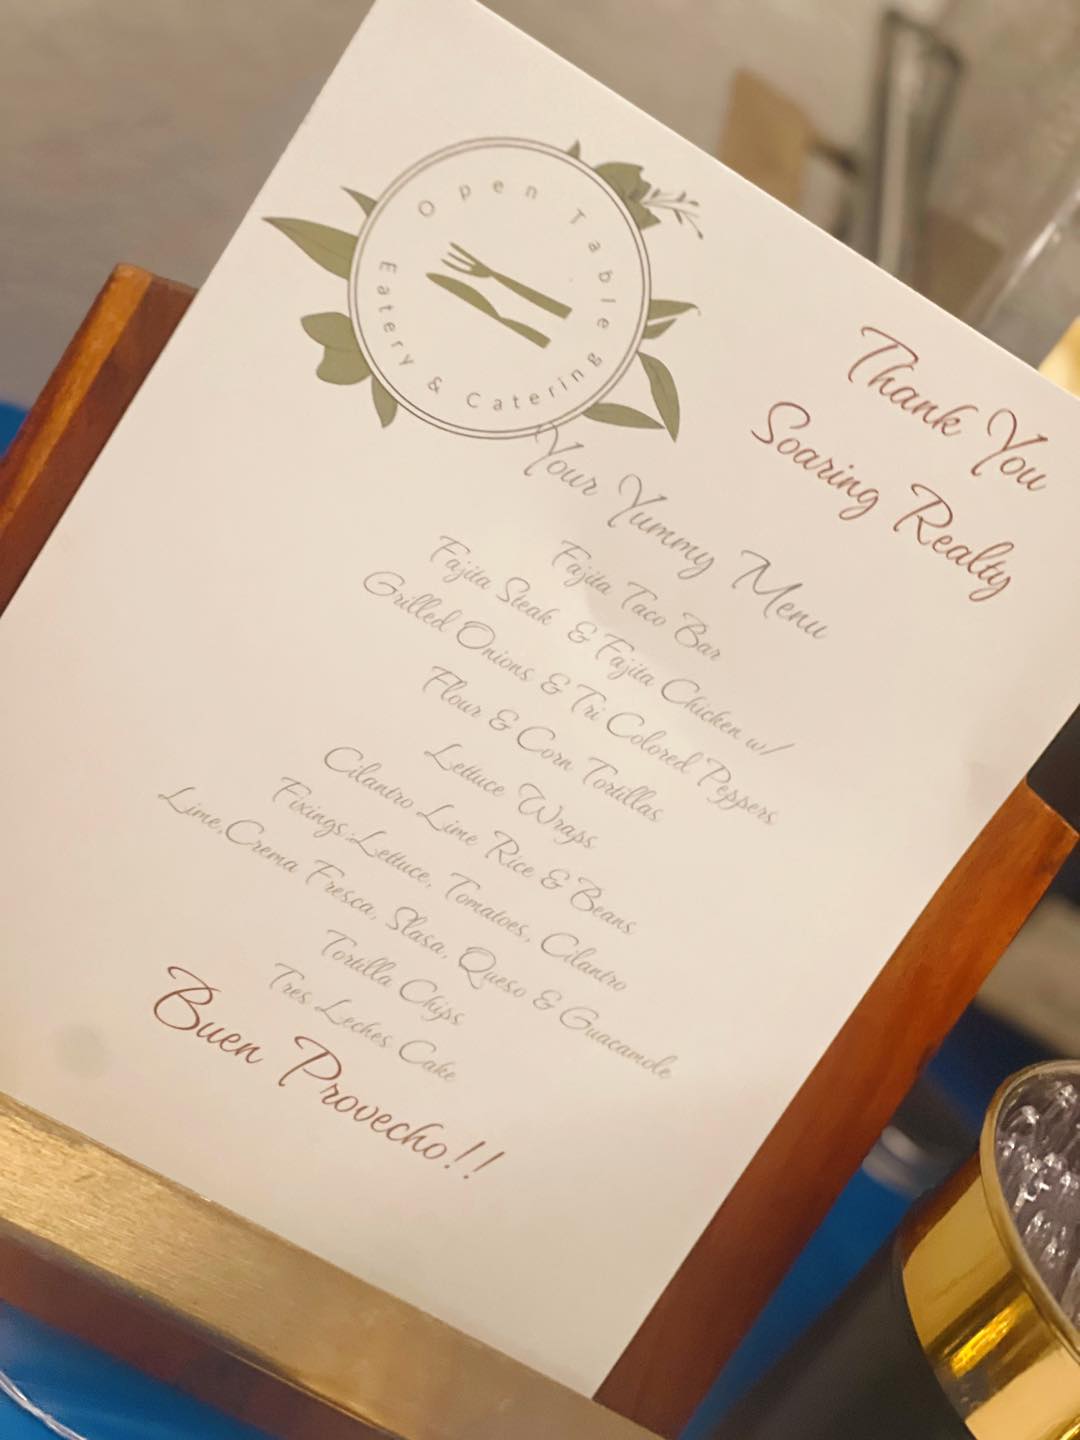 Open Table
Eatery & Catering
Thank You
Soaring Realty
Your Yummy Menu
Fajita Taco Bar
Fajita Steak & Fajita Chicken w/
Grilled Onions & Tri Colored Peppers
Flour & Corn Tortillas
Lettuce Wraps
Cilantro Lime Rice & Beans
Fixings:Lettuce, Tomatoes, Cilantro
Lime,Crema Fresca, Slasa, Queso & Guacamole
Tortilla Chips
Tres Leches Cake
Buen Provecho!!